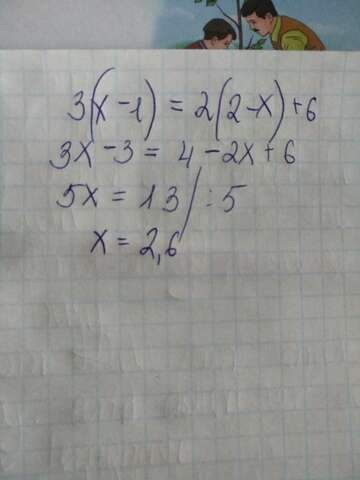 3(x-1) = 2(2-x)+6
3x-3 = 4-2x+6
5x = 13/:5
x = 2,6